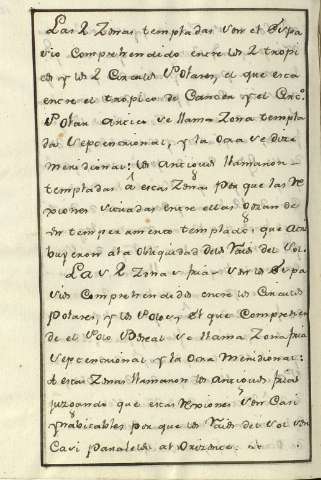 Las 2 Zonas templadas son el Espa
cio Comprehendido entre los 2 tropi
cos y los 2 Circulos Polares, el que esta
entre el tropico de Cancer y el Circ.
Polar Artico se llama Zona templa
da Septentrional, y la Otra se dize
Meridional: los Antiguos llamaron
templadas à estas Zonas por que las Re
xiones situadas entre ellas Gozan de
un temperamento templado, que Atri
buyeron a la Obliquidad de los Raios del Sol.
Las 2 Zonas frias son los Espa
cios Comprehendidos entre los Circulos
Polares, y los Polos, el que Comprehen
de el Polo Boreal se llama Zona fria
Septentrional y la Otra Meridional:
A estas Zonas llamaron los Antiguos frias
juzgando que estas Rexiones son Casi
Ynabitables por que los Raios del Sol son
Casi paralelos al Orizonte: